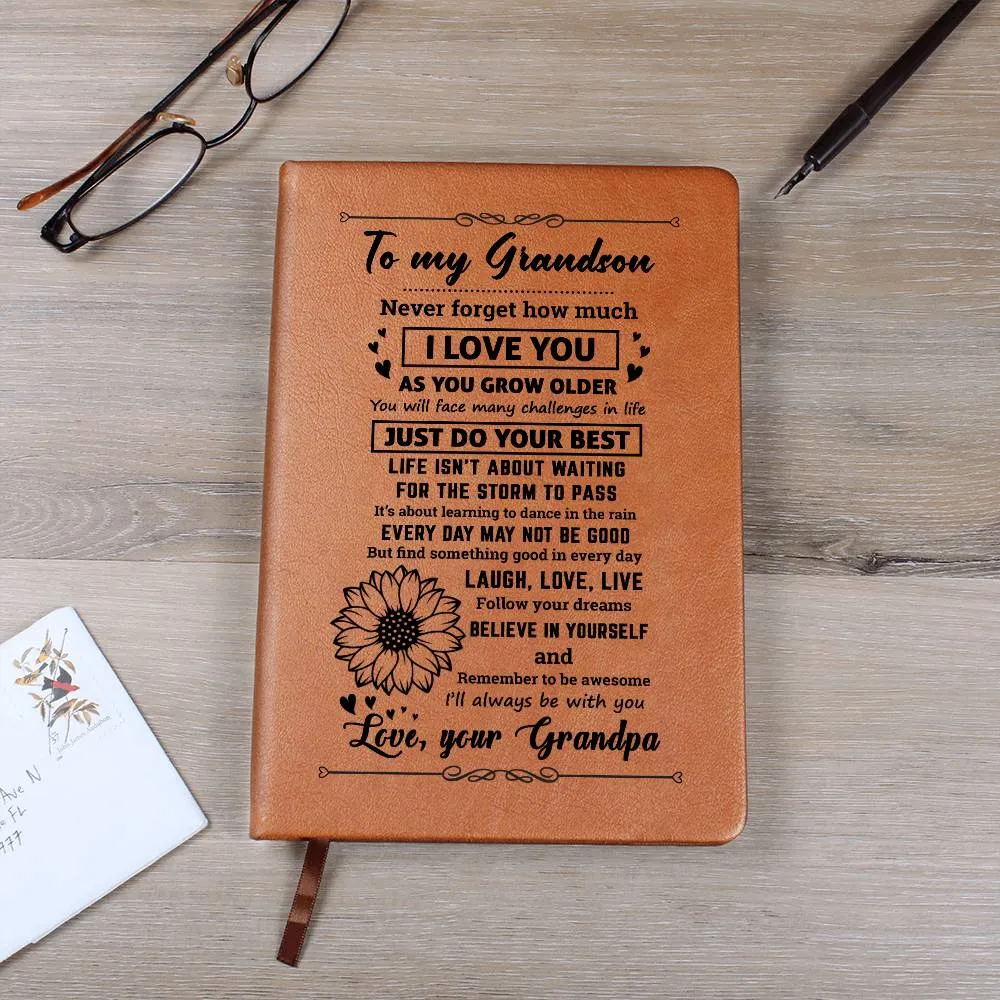 To my Grandson
Never forget how much
I LOVE YOU
AS YOU GROW OLDER
You will face many challenges in life
JUST DO YOUR BEST
LIFE ISN'T ABOUT WAITING
FOR THE STORM TO PASS
It's about learning to dance in the rain
EVERY DAY MAY NOT BE GOOD
But find something good in every day
LAUGH, LOVE, LIVE
Follow your dreams
BELIEVE IN YOURSELF
and
Remember to be awesome
I'll always be with you
Love, your Grandpa
John James Audubon
Ave N
FL
977